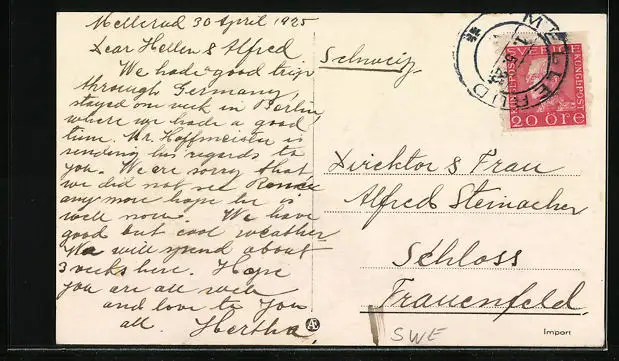 Mellerud 30 April 1925
Dear Hellen & Alfred
We had good trip
through Germany,
stayed one week in Berlin
where we had a good
time. Mr. Hoffmeister is
sending his regards to
you. We are sorry that
we did not see
any more hope he is
well now. We have
good but cool weather
We will spend about
3 weeks here. Hope
you are all well
and love to you
all. Hertha.
Schweiz
MELLERUD
SVERIGE
20 ÖRE
Direktor & Frau
Alfred Steinacher
Schloss
Frauenfeld.
SWE
Import